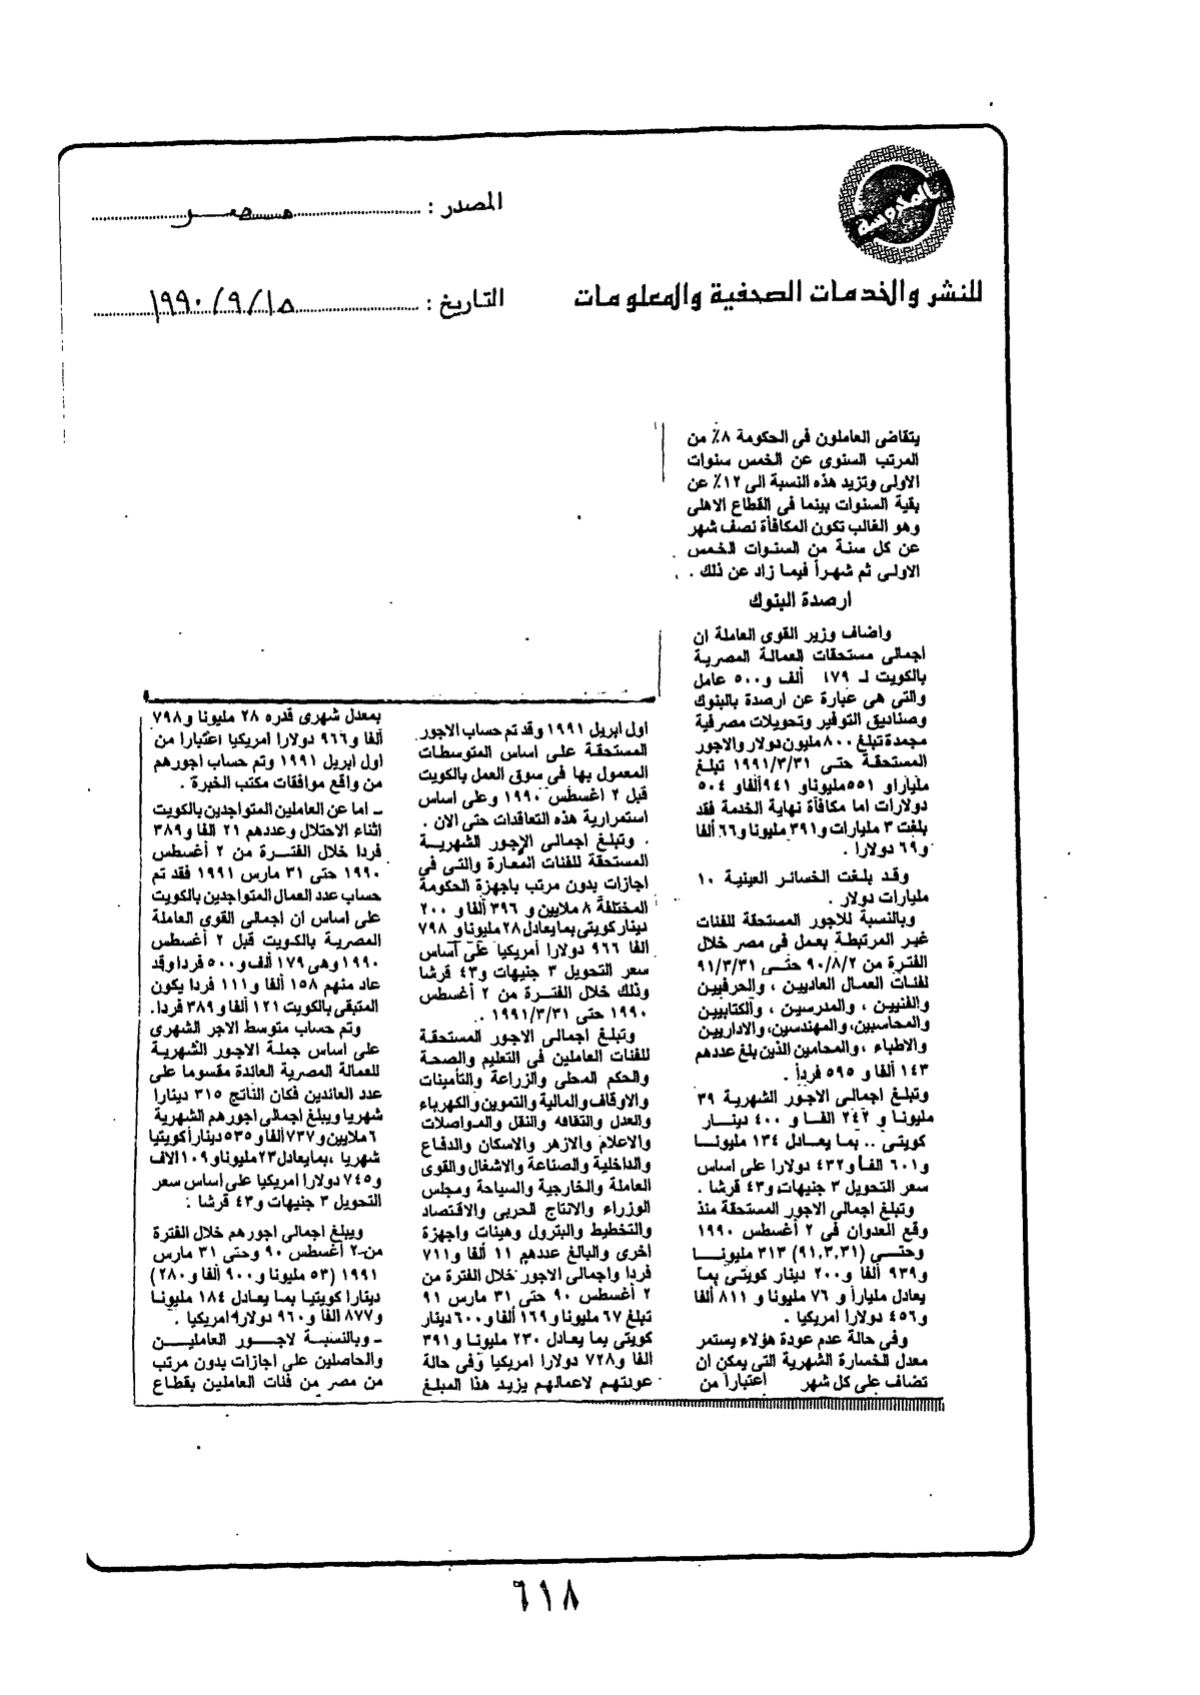 المصدر : مصر
التاريخ : ١٩٩٠/٩/١٥
للنشر والخدمات الصحفية والمعلومات
يتقاضى العاملون فى الحكومة ٨٪ من
المرتب السنوى عن الخمس سنوات
الاولى وتزيد هذه النسبة الى ١٢٪ عن
بقية السنوات بينما فى القطاع الاهلى
وهو الغالب تكون المكافأة نصف شهر
عن كل سنة من السنوات الخمس
الاولى ثم شهراً فيما زاد عن ذلك .
ارصدة البنوك
واضاف وزير القوى العاملة ان
اجمالى مستحقات العمالة المصرية
بالكويت لـ ١٧٩ ألف و٥٠٠ عامل
والتى هى عبارة عن ارصدة بالبنوك
وصناديق التوفير وتحويلات مصرفية
مجمدة تبلغ ٨٠٠ مليون دولار والاجور
المستحقة حتى ١٩٩١/٣/٣١ تبلغ
مليارا و ٥٥١ مليونا و ٩٤١ ألفا و ٥٠٤
دولارات اما مكافأة نهاية الخدمة فقد
بلغت ٣ مليارات و٣٩١ مليونا و٦٦ ألفا
و٦٩ دولارا .
وقد بلغت الخسائر العينية ١٠
مليارات دولار .
وبالنسبة للاجور المستحقة للفئات
غير المرتبطة بعمل فى مصر خلال
الفترة من ٩٠/٨/٢ حتى ٩١/٣/٣١
لفئات العمال العاديين ، والحرفيين
والفنيين ، والمدرسين ، والكتابيين
والمحاسبين، والمهندسين، والاداريين
والاطباء ، والمحامين الذين بلغ عددهم
١٤٣ ألفا و ٥٩٥ فرداً .
وتبلغ اجمالى الاجور الشهرية ٣٩
مليونا و ٢٤٢ الفا و ٤٠٠ دينار
كويتى .. بما يعادل ١٣٤ مليونا
و٦٠١ الفا و٤٣٢ دولارا على اساس
سعر التحويل ٣ جنيهات و٤٣ قرشا .
وتبلغ اجمالى الاجور المستحقة منذ
وقع العدوان فى ٢ أغسطس ١٩٩٠
وحتى (٩١,٣,٣١) ٣١٣ مليونا
و٩٣٩ ألفا و٢٠٠ دينار كويتى بما
يعادل ملياراً و ٧٦ مليونا و ٨١١ ألفا
و٤٥٦ دولارا امريكيا .
وفى حالة عدم عودة هؤلاء يستمر
معدل الخسارة الشهرية التى يمكن ان
تضاف على كل شهر اعتباراً من
اول ابريل ١٩٩١ وقد تم حساب الاجور
المستحقة على اساس المتوسطات
المعمول بها فى سوق العمل بالكويت
قبل ٢ اغسطس ١٩٩٠ وعلى اساس
استمرارية هذه التعاقدات حتى الان .
وتبلغ اجمالى الاجور الشهرية
المستحقة للفئات المعارة والتى فى
اجازات بدون مرتب باجهزة الحكومة
المختلفة ٨ ملايين و ٣٩٦ ألفا و ٢٠٠
دينار كويتى بما يعادل ٢٨ مليونا و ٧٩٨
الفا ٩٦٦ دولارا أمريكيا على أساس
سعر التحويل ٣ جنيهات و٤٣ قرشا
وذلك خلال الفترة من ٢ أغسطس
١٩٩٠ حتى ١٩٩١/٣/٣١ .
وتبلغ اجمالى الاجور المستحقة
للفئات العاملين فى التعليم والصحة
والحكم المحلى والزراعة والتأمينات
والاوقاف والمالية والتموين والكهرباء
والعدل والثقافة والنقل والمواصلات
والاعلام والازهر والاسكان والدفاع
والداخلية والصناعة والاشغال والقوى
العاملة والخارجية والسياحة ومجلس
الوزراء والانتاج الحربى والاقتصاد
والتخطيط والبترول وهيئات واجهزة
اخرى والبالغ عددهم ١١ ألفا و٧١١
فردا واجمالى الاجور خلال الفترة من
٢ أغسطس ٩٠ حتى ٣١ مارس ٩١
تبلغ ٦٧ مليونا و١٦٩ ألفا و٦٠٠ دينار
كويتى بما يعادل ٢٣٠ مليونا و ٣٩١
الفا و٧٢٨ دولارا امريكيا وفى حالة
عودتهم لاعمالهم يزيد هذا المبلغ
بمعدل شهرى قدره ٢٨ مليونا و٧٩٨
ألفا و٩٦٦ دولارا امريكيا اعتبارا من
اول ابريل ١٩٩١ وتم حساب اجورهم
من واقع موافقات مكتب الخبرة .
ـ اما عن العاملين المتواجدين بالكويت
اثناء الاحتلال وعددهم ٢١ الفا و٣٨٩
فردا خلال الفترة من ٢ أغسطس
١٩٩٠ حتى ٣١ مارس ١٩٩١ فقد تم
حساب عدد العمال المتواجدين بالكويت
على اساس ان اجمالى القوى العاملة
المصرية بالكويت قبل ٢ أغسطس
١٩٩٠ وهى ١٧٩ الف و٥٠٠ فردا وقد
عاد منهم ١٥٨ ألفا و١١١ فردا يكون
المتبقى بالكويت ١٢١ ألفا و٣٨٩ فردا.
وتم حساب متوسط الاجر الشهرى
على اساس جملة الاجور الشهرية
للعمالة المصرية العائدة مقسوما على
عدد العائدين فكان الناتج ٣١٥ دينارا
شهريا ويبلغ اجمالى اجورهم الشهرية
٦ ملايين و٧٣٧ ألفا و٥٣٥ دينارا كويتيا
شهريا ، بما يعادل ٢٣ مليونا و١٠٩ الاف
و٧٤٥ دولارا امريكيا على أساس سعر
التحويل ٣ جنيهات و٤٣ قرشا :
ويبلغ اجمالى اجورهم خلال الفترة
من ٢ أغسطس ٩٠ وحتى ٣١ مارس
١٩٩١ (٥٣ مليونا و٩٠٠ ألفا و٢٨٠)
دينارا كويتيا بما يعادل ١٨٤ مليونا
و٨٧٧ الفا و٩٦٠ دولارا امريكيا .
ـ وبالنسبة لاجور العاملين
والحاصلين على اجازات بدون مرتب
من مصر من فئات العاملين بقطاع
٦١٨